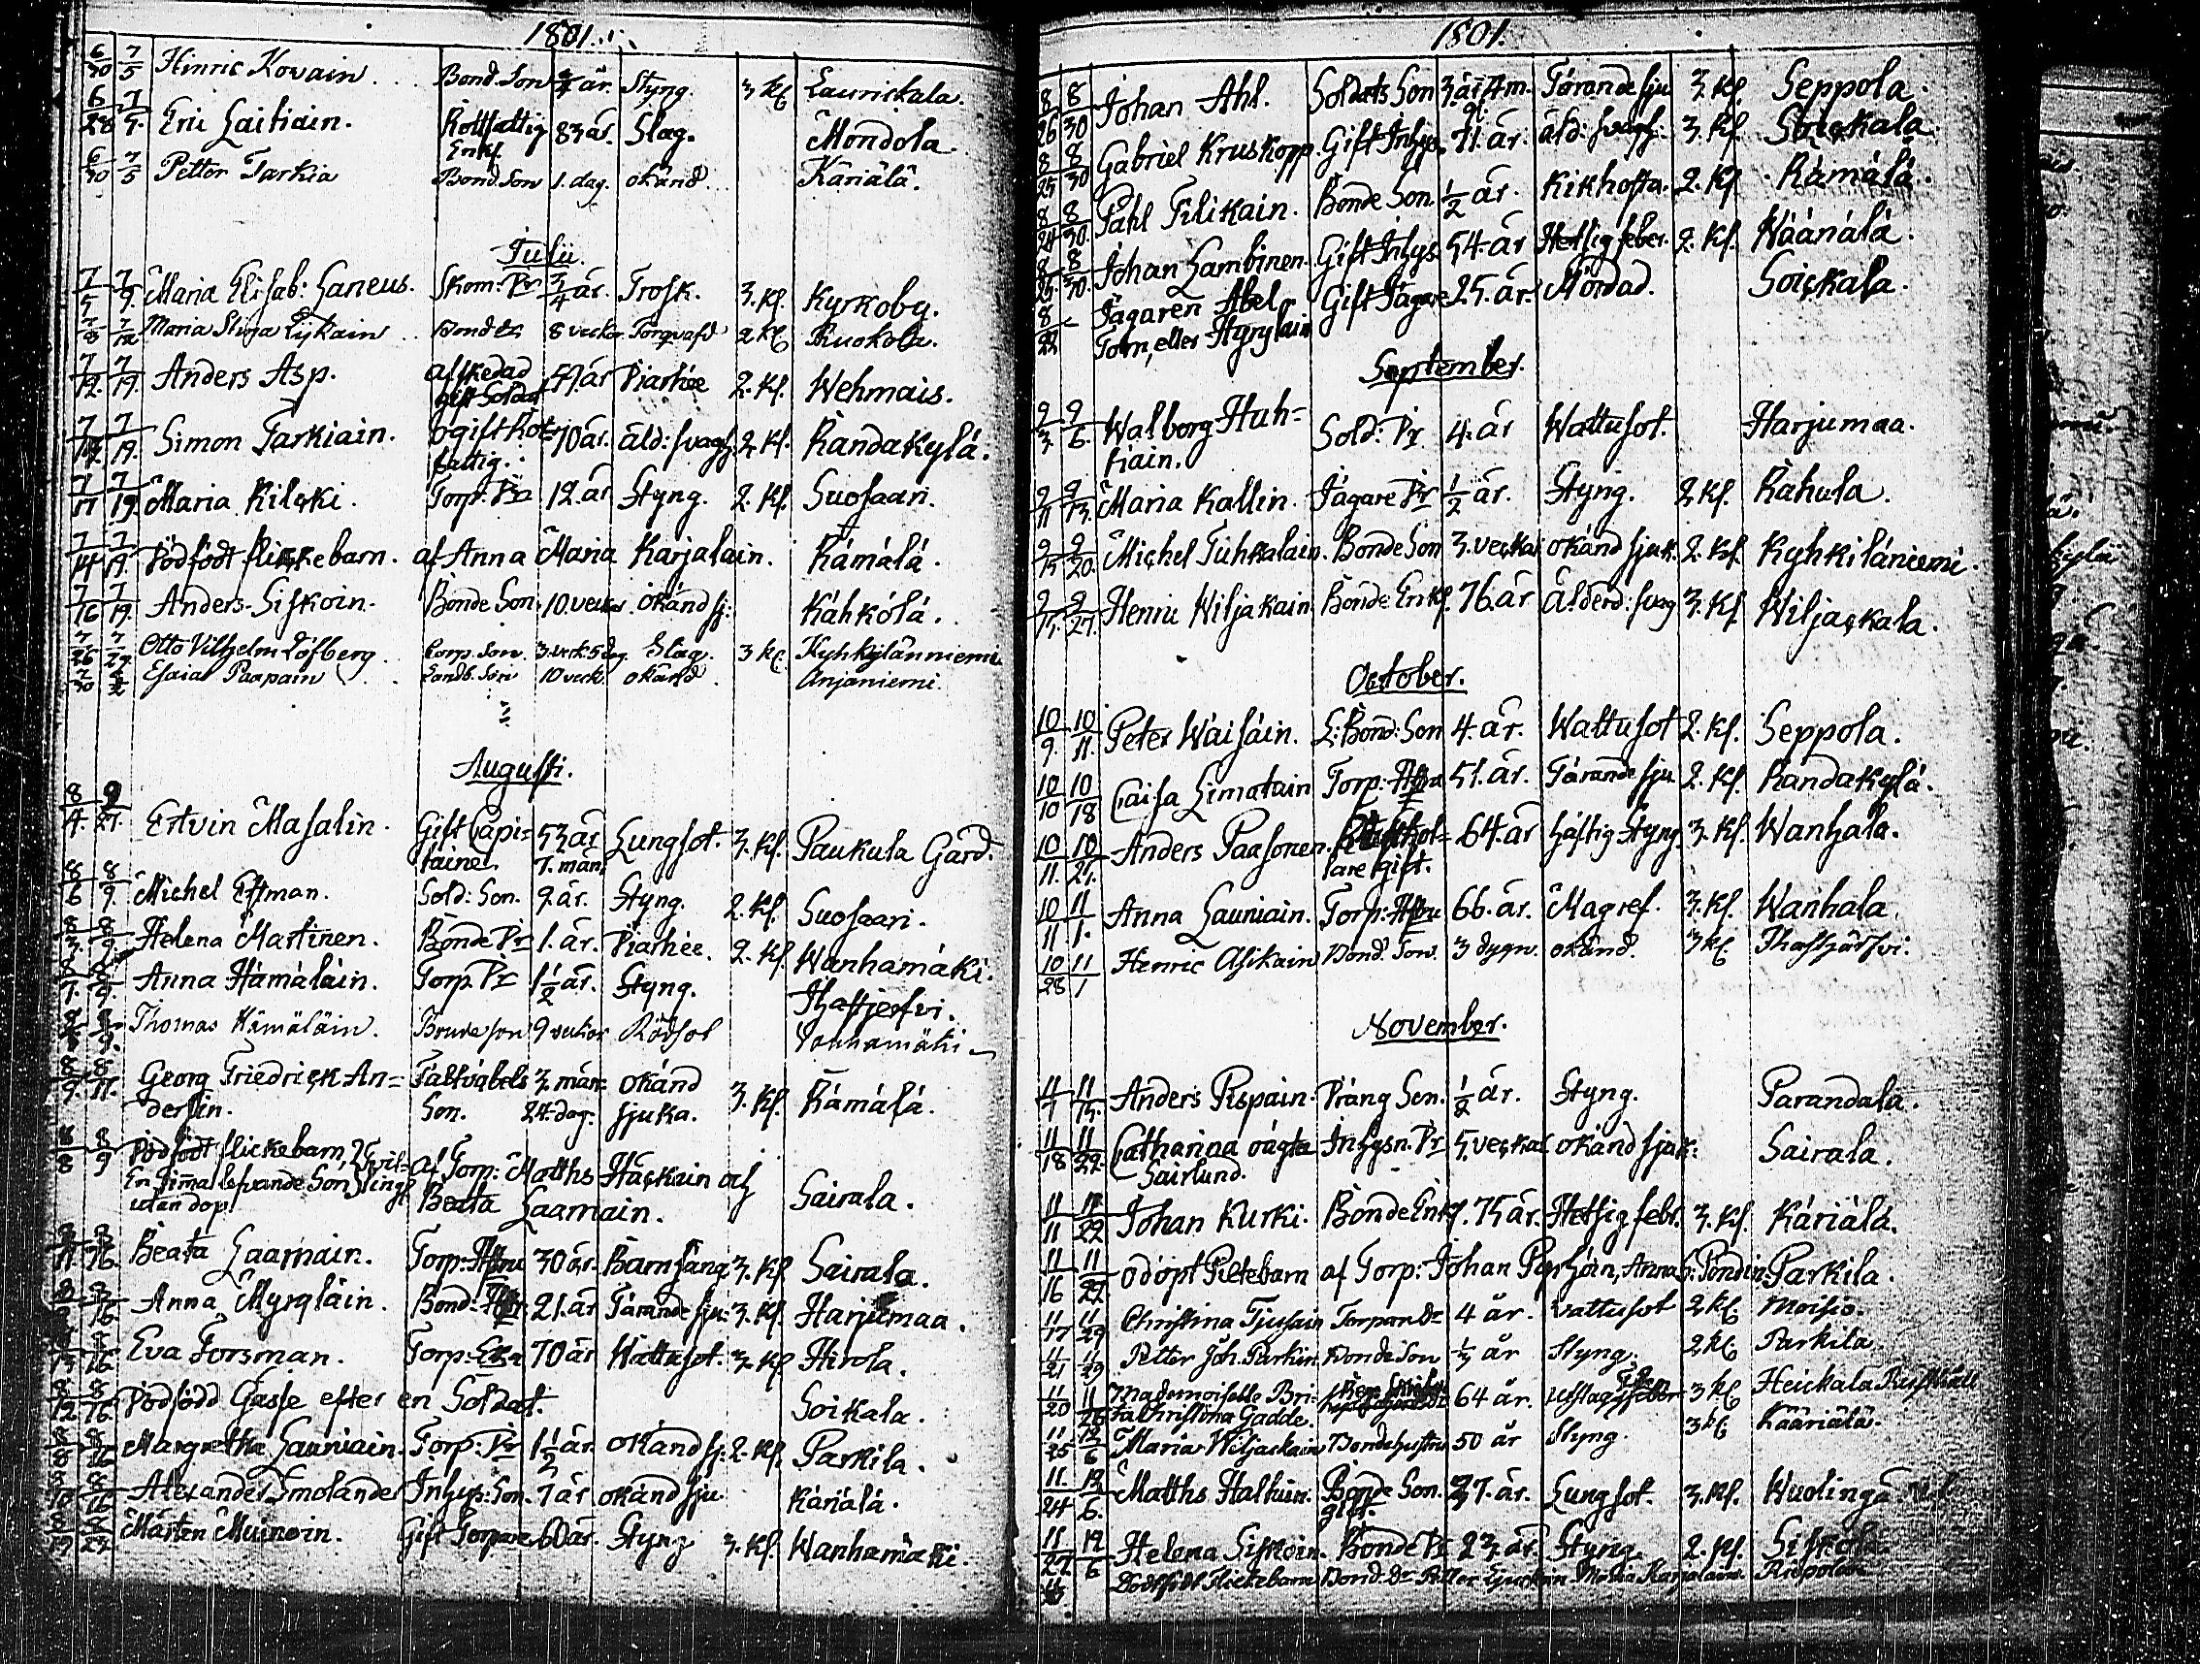 1801.
6/30 7/5 Hinric Kovain. Bond. Son år. Styng. 3 kl Laurickala.
6/28 7/5. Eric Laitiain. Rottfattig Enkl. 83 år. Slag. Mondola.
6/30 7/5 Petter Tarkia Bond. Son 1. dag. okänd. Käriälä.
Julii.
7/5 7/9. Maria Elisab: Saneus. Skom: Dr 3/4 år. Trosk. 3. kl. Kyrkoby.
7/8 7/12 Maria Stina Eykain Bond Dr 8 veckor Torrvärk 2 kl Ruokola.
7/12. 7/19. Anders Asp. afskedad gift Soldat 49. år Diarhée 2. kl. Wehmais.
7/19. Simon Tarkiain. ogift Rot= fattig. 70 år. åld: svagh. 2. kl. Randakylä.
7/17 7/19. Maria Kilcki. Torp: Dr 12. år Styng. 2. kl. Suosaari.
7/14 7/19. Dödfödt flickebarn. af Anna Maria Karjalain. Rämälä.
7/16 7/19. Anders Siskoin. Bonde Son. 10. veckor okänd sj: Kähkölä.
7/26 7/29. Otto Vilhelm Löfberg. Corp. Son. 3. veck. 5 dag. Slag. 3 kl. Kyhkylänniemi
7/30 8/2 Esaias Paapain Landb. Son 10 veck okänd. Anjaniemi.
Augusti.
8/4. Ertvin Masalin. Gift Capi= taine. 53 år 7. mån. Lungsot. 3. kl. Paukula Gård.
8/6 8/9. Michel Estman. Sold: Son. 9. år. Styng. 2. kl. Suosaari.
8/3. 8/9. Helena Martinen. Bonde Dr 1. år. Diarhée. 2. kl. Wanhamäki.
8/7. 8/9. Anna Hämäläin. Torp. Dr 1 1/2 år. Styng. Ihastjerfvi.
Thomas Hämäläin. Bonde son 9 veckor Rödsot Vanhamäki
8/9. 8/11. Georg Friedrick An= dersin. Fältväbels Son. 3. mån= 24. dag. okänd sjuka. 3. kl. Rämälä.
8/8 8/9 Dödfödt flickebarn, Tvil= af Torp: Matths Häckain och
En Jämmalefvande Son lingt Beata Laamain. Sairala.
utan dop.
8/11 8/16. Beata Laamain. Torp: Hstru 30 år. Barnsäng 3. kl Sairala.
8/16 Anna Myryläin. Bond: Hstr. 21. år Tärande sju: 3. kl. Harjumaa.
8/13 8/16 Eva Forsman. Torp: Enk 70 år Wattusot. 3. kl Hirola.
8/12 8/16. Dödfödd Gosse efter en Soldat. Soikala.
8/8 8/16 Margretha Launiain. Torp: Dr 1 1/2 år. okänd sj: 2. kl. Parkila.
8/10 8/16 Alexander Smolander Inhys: Son. 7 år okänd sju. Käriälä.
8/19 8/23. Mårten Muinoin. Gift Torpare 60 år. Styng 3. kl. Wanhamäki.
1801.
8/26 8/30 Johan Ahl. Soldats Son 3. år Tärande sju 3. kl. Seppola.
8/25 8/30 Gabriel Kruskopp. Gift Inhys. 71. år. åld: svagh: 3. kl. Soickala.
8/24 8/30. Påhl Filikain. Bonde Son. 1/2 år. Kikhosta. 2. kl Rämälä.
8/25. 8/30. Johan Lambinen. Gift Inhys. 54. år Hetsig feber. 2. kl. Wäänälä.
8/22 Jägaren Abel Gift Jägare 25. år. Mördad. Soickala.
Torn, eller Hyrylain
September.
9/3 9/6. Walborg Huh= tiain. Sold: Dr 4. år Wattusot. Harjumaa.
9/11 9/13. Maria Kallin. Jägare Dr 1/2 år. Styng. 2 kl. Rahula.
9/15 9/20. Michel Tuhkalain. Bonde Son 3. veckor okänd sjuk. 2. kl. Kyhkiläniemi.
9/27. Henric Wiljakain. Bonde Enkl. 76. år Ålderd: svag 3. kl Wiljackala.
October.
10/9. 10/11. Peter Wäisäin. L: Bond: Son 4. år. Wattusot 2. kl. Seppola.
10/10 10/18 Caisa Limatain Torp: Hstru 51. år. Tärande sju 2. kl. Randakylä.
10/11. Anders Paasonen. Rusthol= lare Gift. 64. år häftig Styng 3. kl. Wanhala.
10/11 11/1. Anna Launiain. Torp: Hstru 66. år. Magref. 3. kl. Wanhala.
10/28 11/1 Henric Asikain Bond. Son. 3 dygn. okänd. 3 kl Ihastjärfvi.
November.
11/7 11/15. Anders Pispain. Dräng Son. 1/2 år. Styng. Parandala.
11/18 11/22. Catharina oägta Sairlund. Inhysn. Dr 5. veckor okänd sjuk: Sairala.
11/11 11/22 Johan Kurki. Bonde Enkl. 75 år. Hetsig febr. 3. kl. Käriälä.
11/16 11/22. Odöpt Piltebarn af Torp: Johan Parkin, Anna S: Pöndin. Parkila.
11/17 11/29 Christina Tjusain Torpare Dr 4 år. Vattusot 2 kl. Moisio.
11/21 11/29 Petter Joh. Parkin Bonde Son 1/2 år Styng. 2 kl. Parkila
11/20 11/26 Mademoiselle Bri= ta Christina Gadde. 64 år. 3 kl Heickala Rusthåll
11/25 12/6 Maria Wiljackain Bondehustru 50 år Styng. 3 kl Kääriälä.
11/24 12/6. Matths Halkin. Bonde Son. gift. 27. år. Lungsot. 3. kl. Wuolinga
11/27 12/6 Helena Siskoin. Bonde Dr 23. år. Styng. 2. kl. Siskola.
Dödfödt Flickebarn Bond. Dr Petter Maria Karjalain.